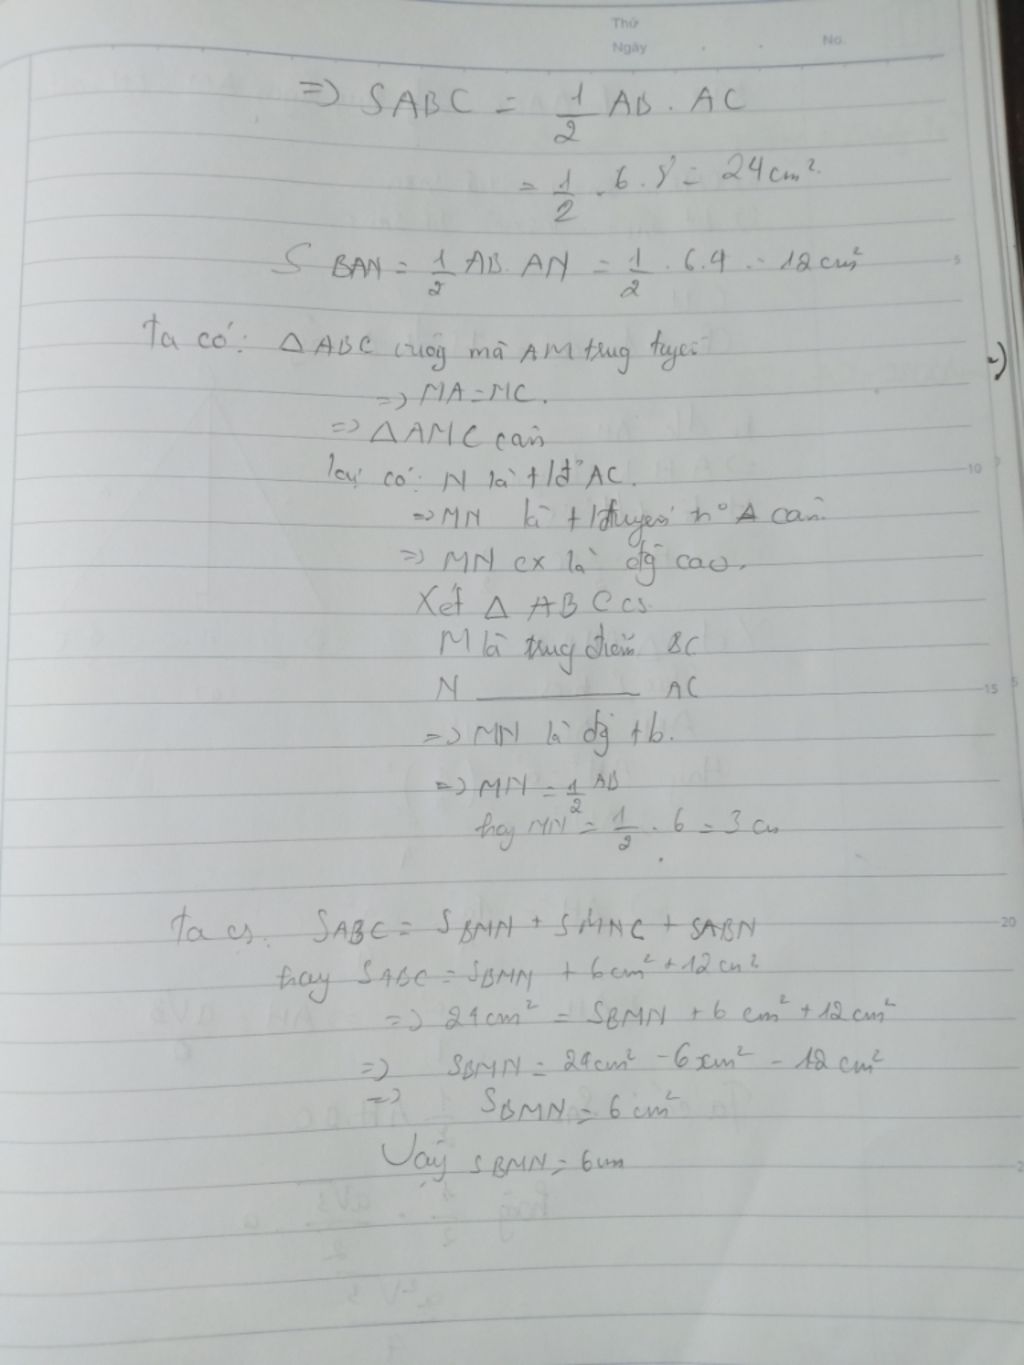 Thứ
Ngày No.
=> SABC = 1/2 AB . AC
= 1/2 . 6 . 8 = 24 cm².
S BAN = 1/2 AB. AN = 1/2 . 6.4 = 12 cm²
Ta có: Δ ABC vuôg mà AM trug tuyến
=> MA = MC.
=> Δ AMC cân
lại có: N là t/đ AC.
=> MN là t/tuyến
=> MN cx là đg cao.
Xét Δ ABC cs
M là trug điểm BC
N ——— AC
=> MN là đg tb.
=> MN = 1/2 AB
hay MN = 1/2 . 6 = 3 cm
Ta cs. SABC = SBMN + SMNC + SABN
hay SABC = SBMN + 6cm² + 12cm²
=> 24cm² = SBMN + 6 cm² + 12cm²
=> SBMN = 24cm² - 6cm² - 12cm²
=> SBMN = 6cm²
Vậy SBMN = 6cm
5
10
15
20